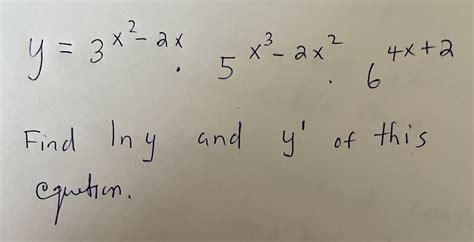 y = 3^(x^2 - 2x) · 5^(x^3 - 2x^2) · 6^(4x + 2)
Find ln y and y' of this
equation.